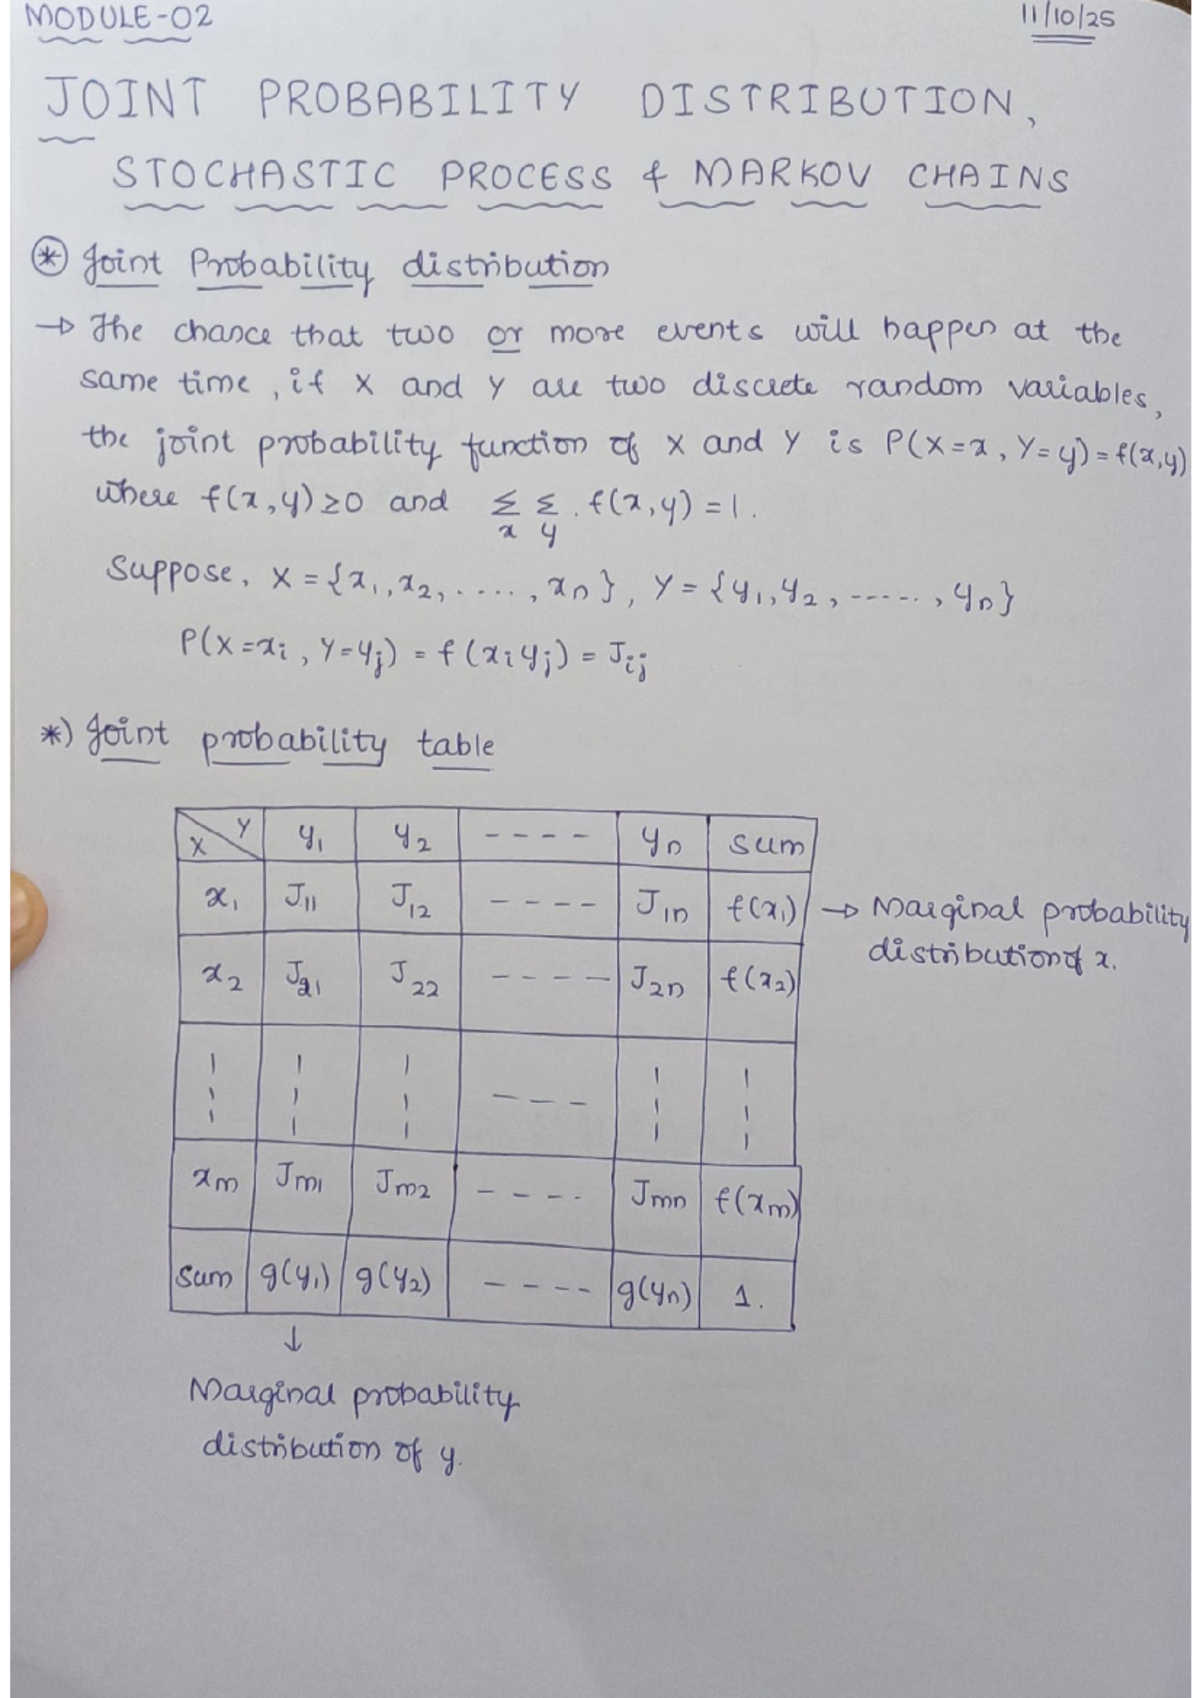 MODULE-02
11/10/25
JOINT PROBABILITY DISTRIBUTION,
STOCHASTIC PROCESS & MARKOV CHAINS
* Joint Probability distribution
→ The chance that two or more events will happen at the
same time, if X and Y are two discrete random variables,
the joint probability function of X and Y is P(X=x, Y=y)=f(x,y)
where f(x,y)≥0 and Σx Σy f(x,y)=1.
Suppose, X={x₁,x₂,....,xn}, Y={y₁,y₂,-----,yn}
P(X=xi, Y=yj) = f(xiyj) = Jij
*) Joint probability table
X Y y₁ y₂ ---- yn sum
x₁ J₁₁ J₁₂ ---- J₁n f(x₁) → Marginal probability
distribution of x.
x₂ J₂₁ J₂₂ ---- J₂n f(x₂)
xm Jm₁ Jm₂ ---- Jmn f(xm)
sum g(y₁) g(y₂) ---- g(yn) 1.
↓
Marginal probability
distribution of y.